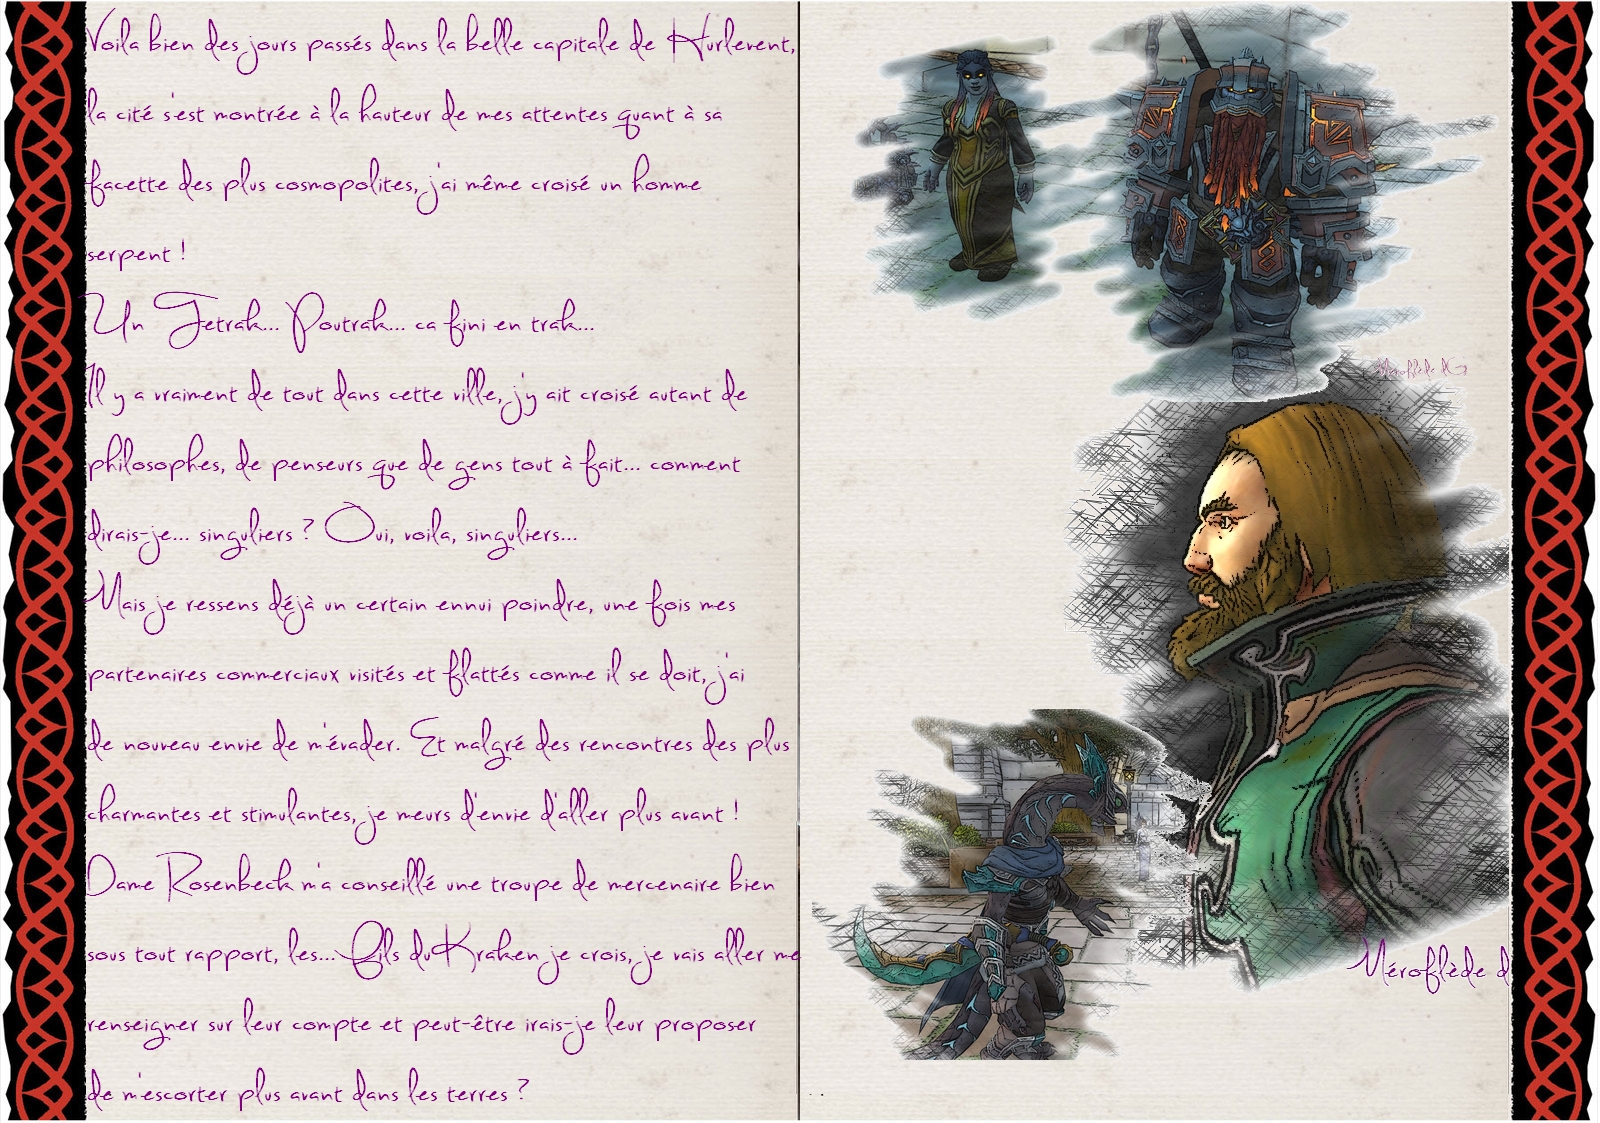 Voila bien des jours passés dans la belle capitale de Hurlevent,
la cité s'est montrée à la hauteur de mes attentes quant à sa
facette des plus cosmopolites, j'ai même croisé un homme
serpent !
Un Jetrak... Poutrak... ca fini en trak...
Il y a vraiment de tout dans cette ville, j'y ait croisé autant de
philosophes, de penseurs que de gens tout à fait... comment
dirais-je... singuliers ? Oui, voila, singuliers...
Mais je ressens déjà un certain ennui poindre, une fois mes
partenaires commerciaux visités et flattés comme il se doit, j'ai
de nouveau envie de m'évader. Et malgré des rencontres des plus
charmantes et stimulantes, je meurs d'envie d'aller plus avant !
Dame Rosenbeck m'a conseillé une troupe de mercenaire bien
sous tout rapport, les... Fils du Kraken je crois, je vais aller me
renseigner sur leur compte et peut-être irais-je leur proposer
de m'escorter plus avant dans les terres ?
Méroflède
Méroflède d